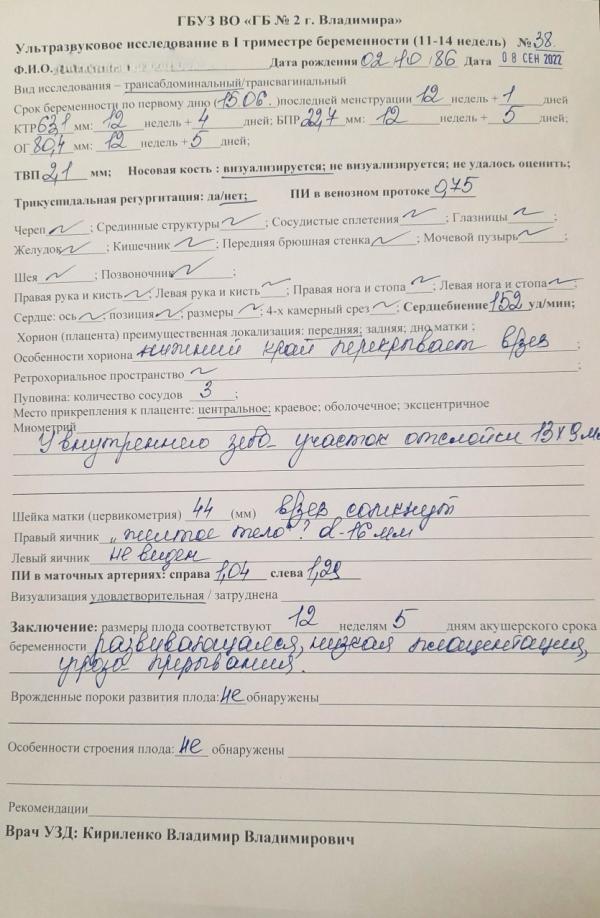 ГБУЗ ВО «ГБ № 2 г. Владимира»
Ультразвуковое исследование в I триместре беременности (11-14 недель) № 38.
Ф.И.О. Дата рождения 02.10.86 Дата 08 СЕН 2022
Вид исследования – трансабдоминальный/трансвагинальный
Срок беременности по первому дню (15.06.)последней менструации 12 недель + 1 дней
КТР 63,1 мм: 12 недель + 4 дней; БПР 22,7 мм: 12 недель + 5 дней;
ОГ 80,4 мм: 12 недель + 5 дней;
ТВП 2,1 мм; Носовая кость : визуализируется; не визуализируется; не удалось оценить;
Трикуспидальная регургитация: да/нет; ПИ в венозном протоке 0,75
Череп ; Срединные структуры ; Сосудистые сплетения ; Глазницы ;
Желудок ; Кишечник ; Передняя брюшная стенка ; Мочевой пузырь ;
Шея ; Позвоночник ;
Правая рука и кисть ; Левая рука и кисть ; Правая нога и стопа ; Левая нога и стопа ;
Сердце: ось ; позиция ; размеры ; 4-х камерный срез ; Сердцебиение 152 уд/мин;
Хорион (плацента) преимущественная локализация: передняя; задняя; дно матки ;
Особенности хориона нижний край перекрывает в/зев ;
Ретрохориальное пространство ;
Пуповина: количество сосудов 3 ;
Место прикрепления к плаценте: центральное; краевое; оболочечное; эксцентричное
Миометрий
У внутреннего зева участок отслойки 13х9 мм
Шейка матки (цервикометрия) 44 (мм) в/зев сомкнут
Правый яичник „желтое тело"? d-16 мм
Левый яичник не виден
ПИ в маточных артериях: справа 1,04 слева 1,29
Визуализация удовлетворительная / затруднена
Заключение: размеры плода соответствуют 12 неделям 5 дням акушерского срока
беременности развивающаяся, низкая плацентация,
угроза прерывания.
Врожденные пороки развития плода: не обнаружены
Особенности строения плода: не обнаружены
Рекомендации
Врач УЗД: Кириленко Владимир Владимирович